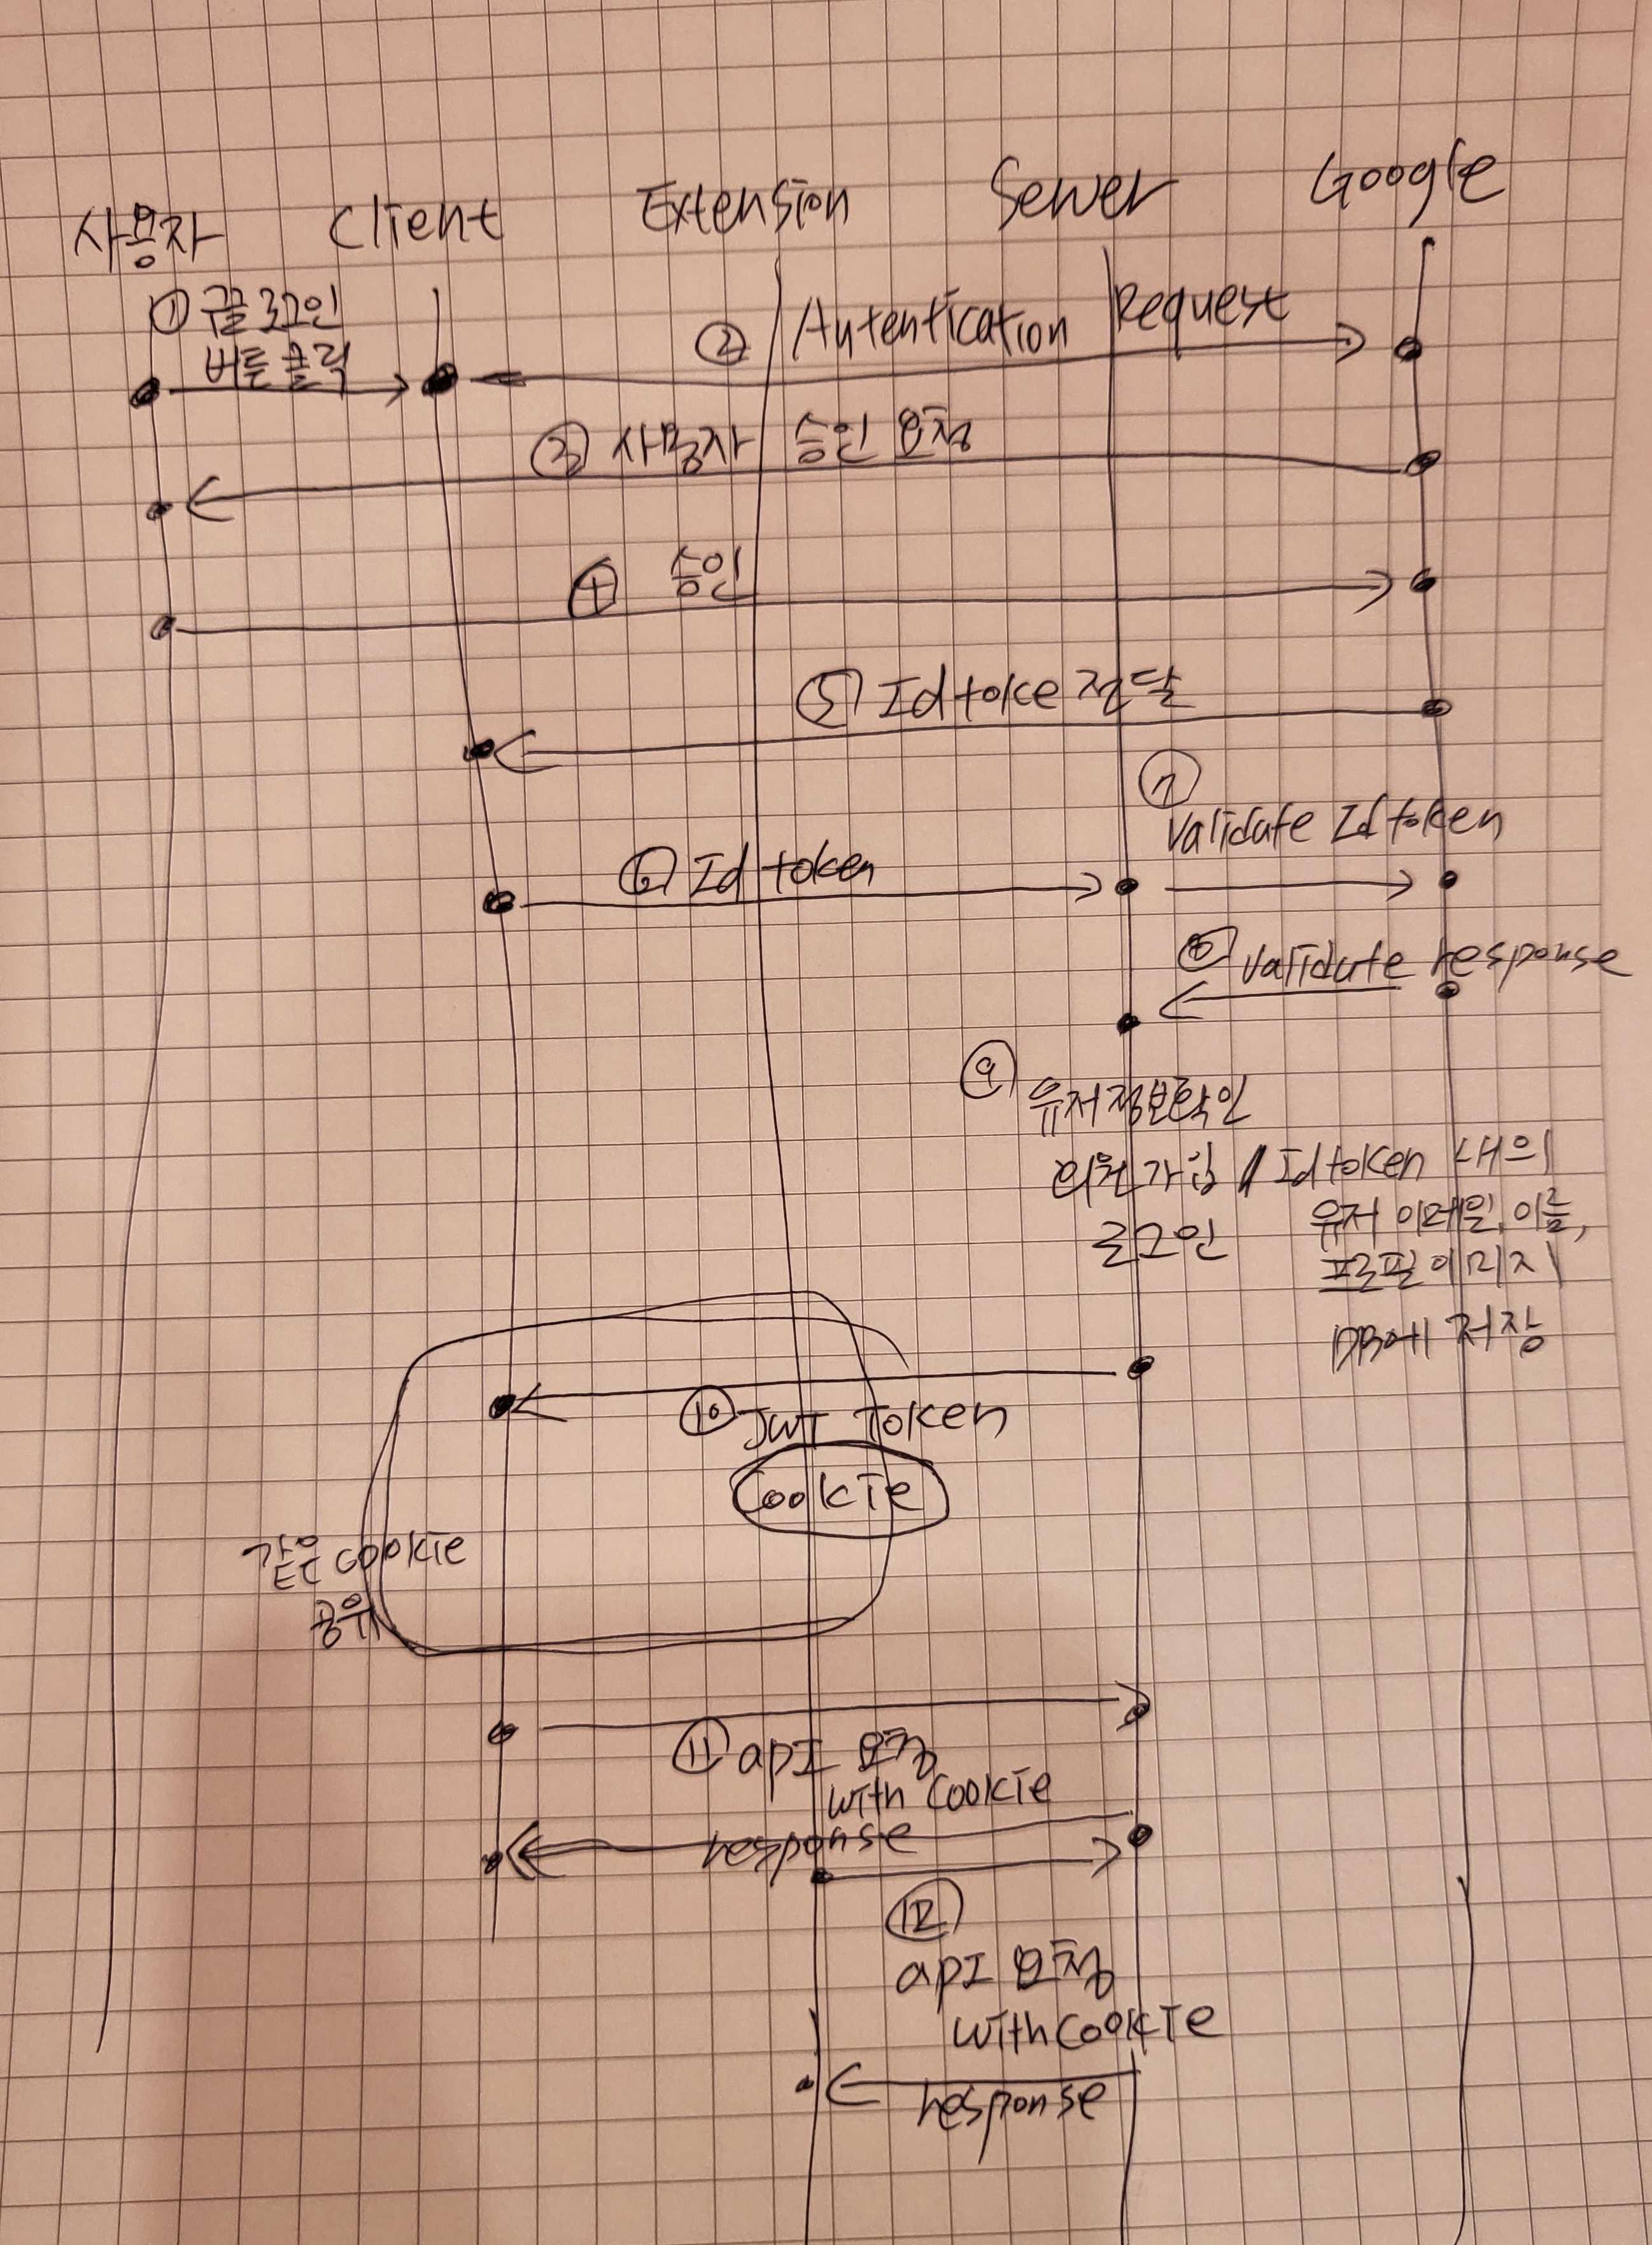 사용자 Client Extension Server Google
① 구글 로그인
버튼 클릭
② Autentication Request
③ 사용자 승인 요청
④ 승인
⑤ Id toke 전달
⑦
Validate Id token
⑥ Id token
⑧ Validate response
⑨ 유저정보확인
회원가입 / Id token 내의
로그인 유저 이메일, 이름,
프로필 이미지
DB에 저장
⑩ JWT Token
Cookie
같은 cookie
공유
⑪ apI 요청
with Cookie
response
⑫
apI 요청
with cookie
response